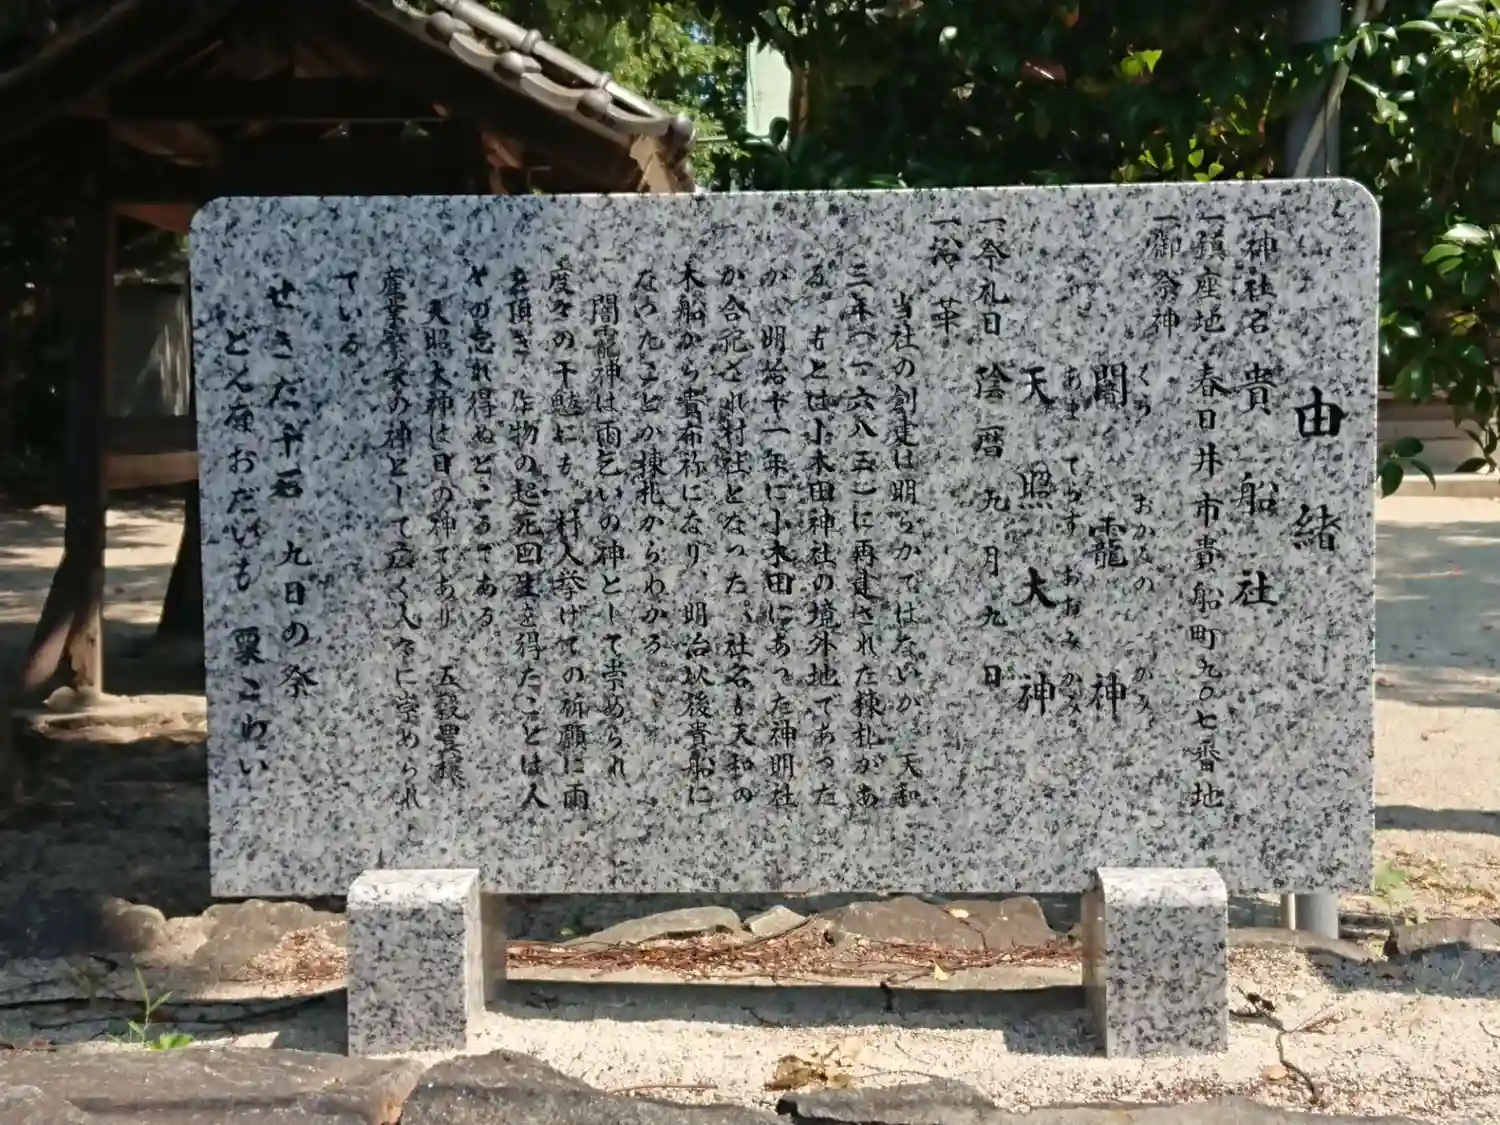 由緒
一神社名 貴船社
一鎮座地 春日井市貴船町九〇七番地
一御祭神
くら おかみの かみ
闇龗神
あま てらす おおみ かみ
天照大神
一祭礼日 陰暦九月九日
一沿革
当社の創建は明らかではないが、天和
三年(一六八三)に再建された棟札があ
る。もとは小木田神社の境外地であった
が、明治十一年に小木田にあった神明社
が合祀され村社となった。社名も天和の
木船から貴布祢になり、明治以後貴船に
なったことが棟札からわかる。
闇龗神は雨乞いの神として崇められ
度々の干魃にも、村人挙げての祈願に雨
を頂き、作物の起死回生を得たことは人
々の忘れ得ぬところである。
天照大神は日の神であり、五穀豊穣
産業繁栄の神として広く人々に崇められ
ている。
せきだ千石 九日の祭
どん庵おだいも 粟こわい